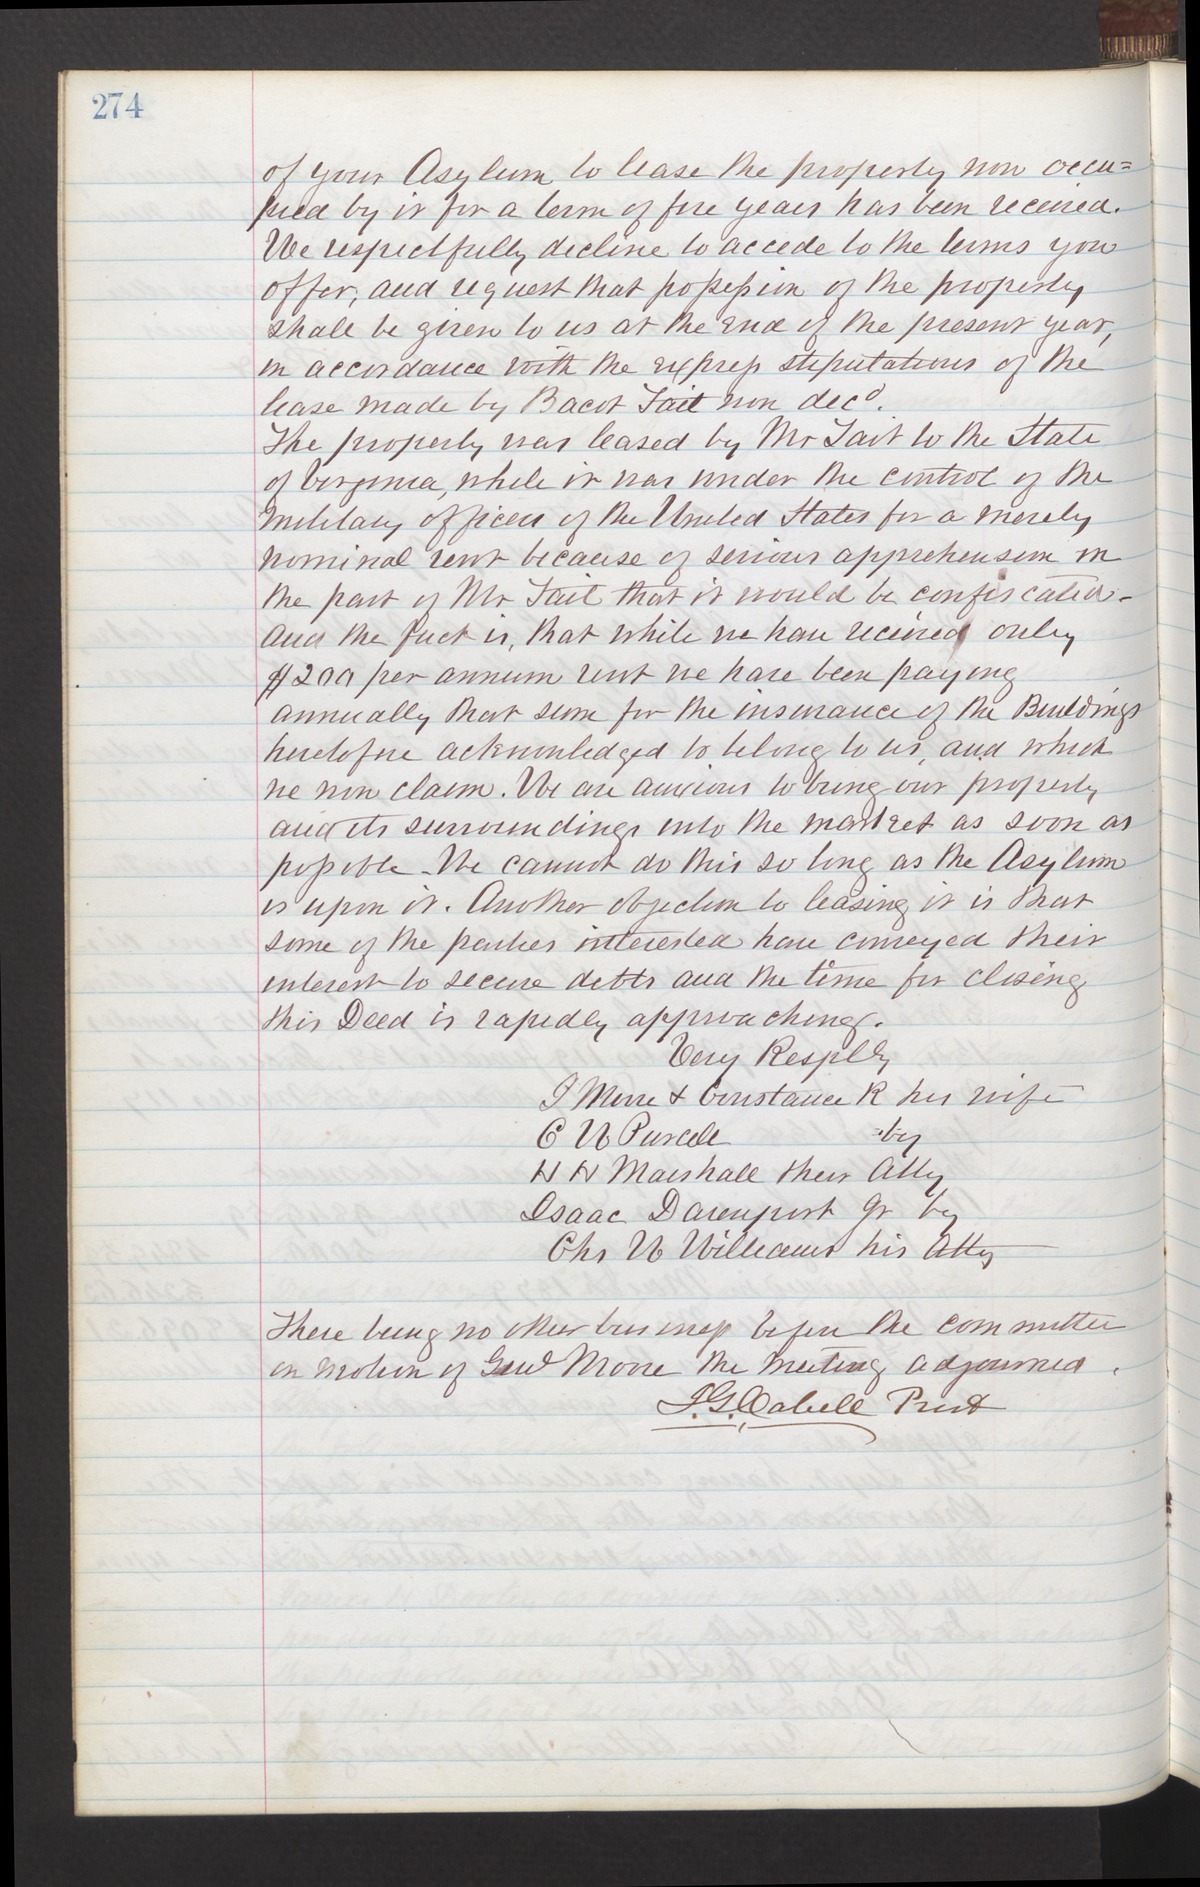 274
of your Asylum to lease the property now occu=
pied by it for a term of five years has been received.
We respectfully decline to accede to the terms you
offer, and request that possession of the property
shall be given to us at the end of the present year,
in accordance with the express stipulations of the
lease made by Bacot Tait now decd.
The property was leased by Mr Tait to the State
of Virginia, while it was under the control of the
military officers of the United States for a merely
nominal rent because of serious apprehension on
the part of Mr Tait that it would be confiscated.
And the fact is, that while we have received only
$200 per annum rent we have been paying
annually that sum for the insurance of the Buildings
heretofore acknowledged to belong to us, and which
we now claim. We are anxious to bring our property
and its surroundings into the market as soon as
possible. We cannot do this so long as the Asylum
is upon it. Another objection to leasing it is that
some of the parties interested have conveyed their
interest to secure debts and the time for closing
this Deed is rapidly approaching.
Very Respllly
& Constance R his wife
Purcell by
H H Marshall their Atty
Isaac Davenport Jr by
Chs W Williams his Atty
There being no other business before the committee
on motion of Genl Moore the meeting adjourned.
J. G. Cabell Prest